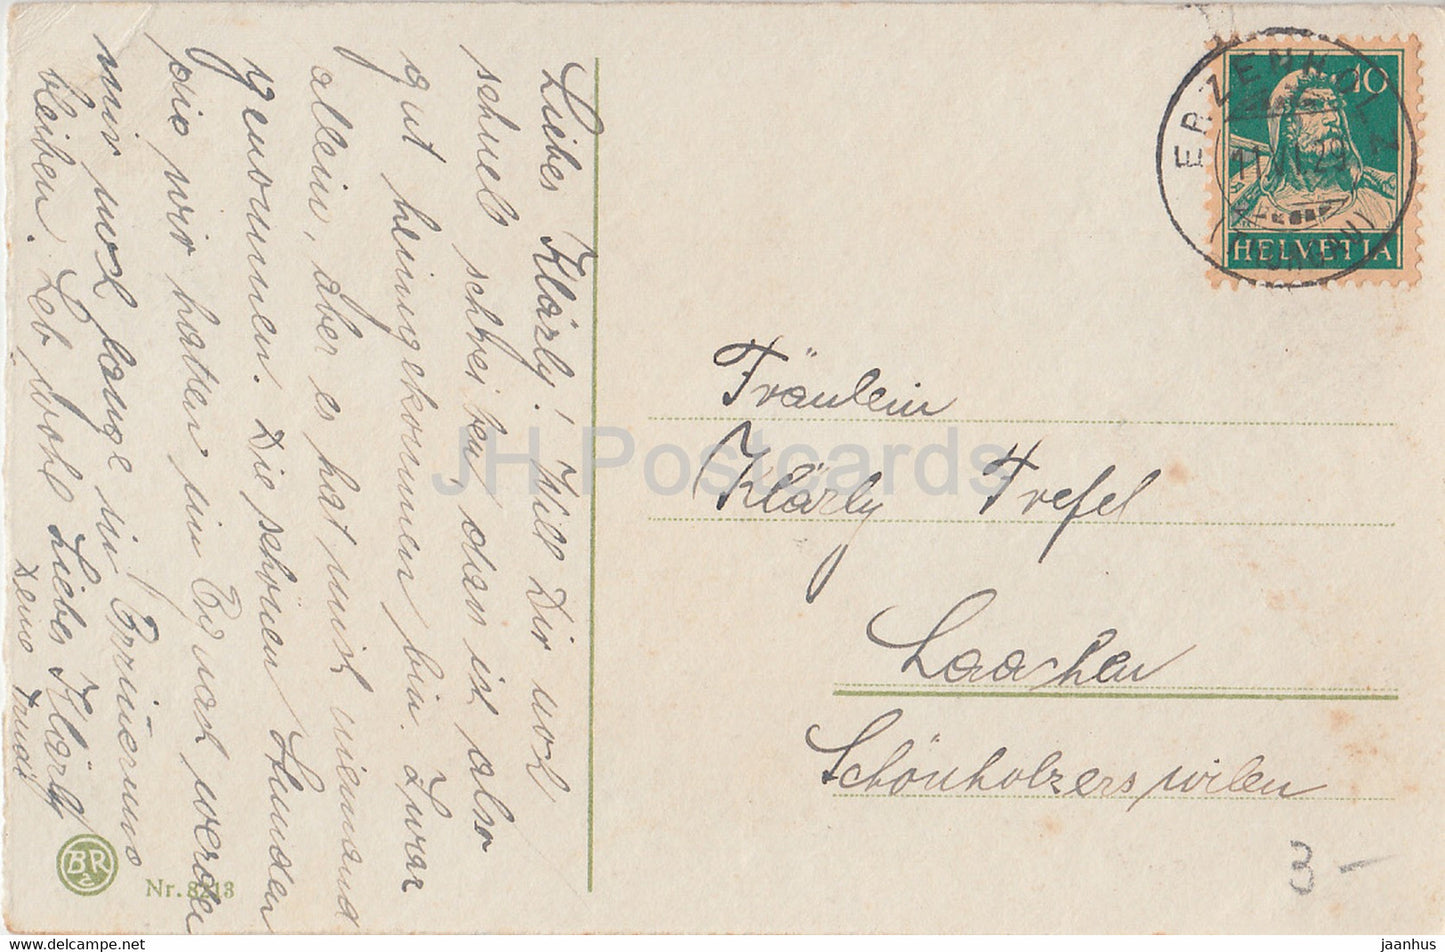 Liebes Klärly! Will Dir noch
schnel schreiben, dass ich also
gut heimgekommen bin. Zwar
allein, aber es hat mich niemand
genommen. Die schönen Stunden
die wir hatten im Egnach werden
mir noch lange in Erinnerung
bleiben. Leb wohl Liebes Klärly
Deine Trudi
BR
Nr. 8213
ERZENHOLZ
10
HELVETIA
Fräulein
Klärly Trefel
Laachen
Schönholzerswilen
3 –
JH Postcards
www.delcampe.net
jaanhus